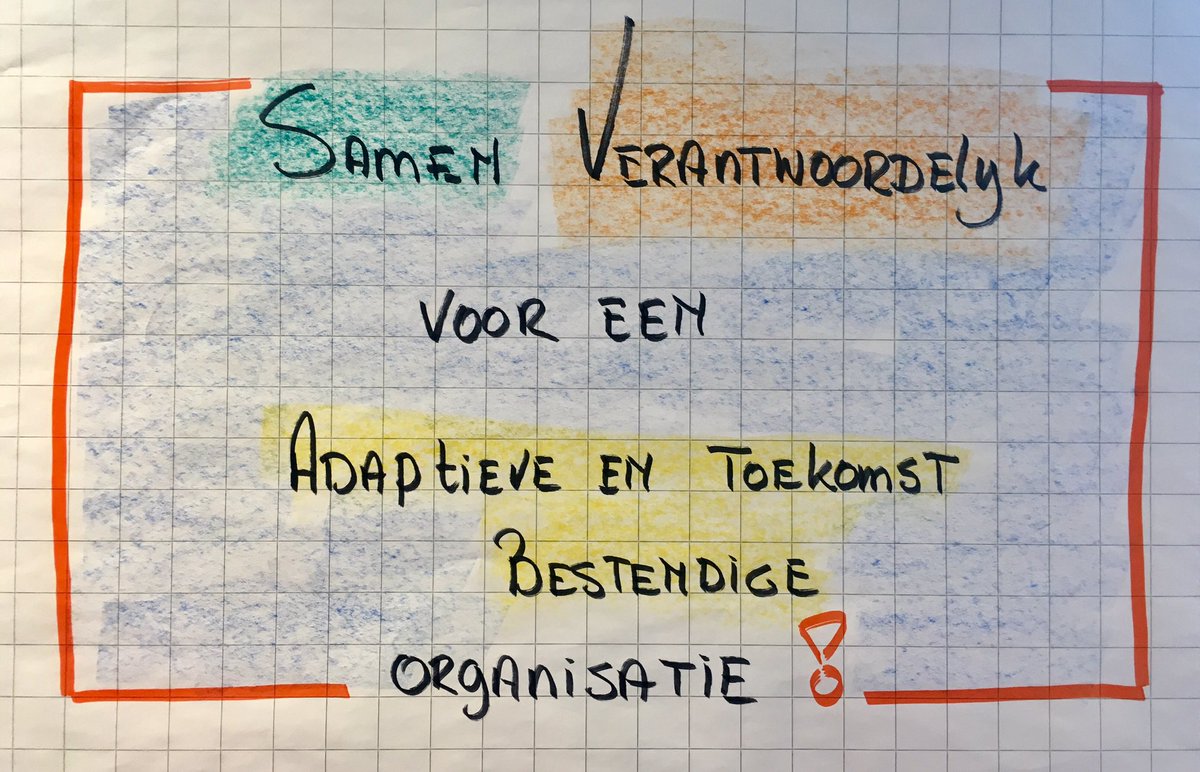 Samen Verantwoordelyk
voor een
Adaptieve en Toekomst
Bestendige
organisatie!